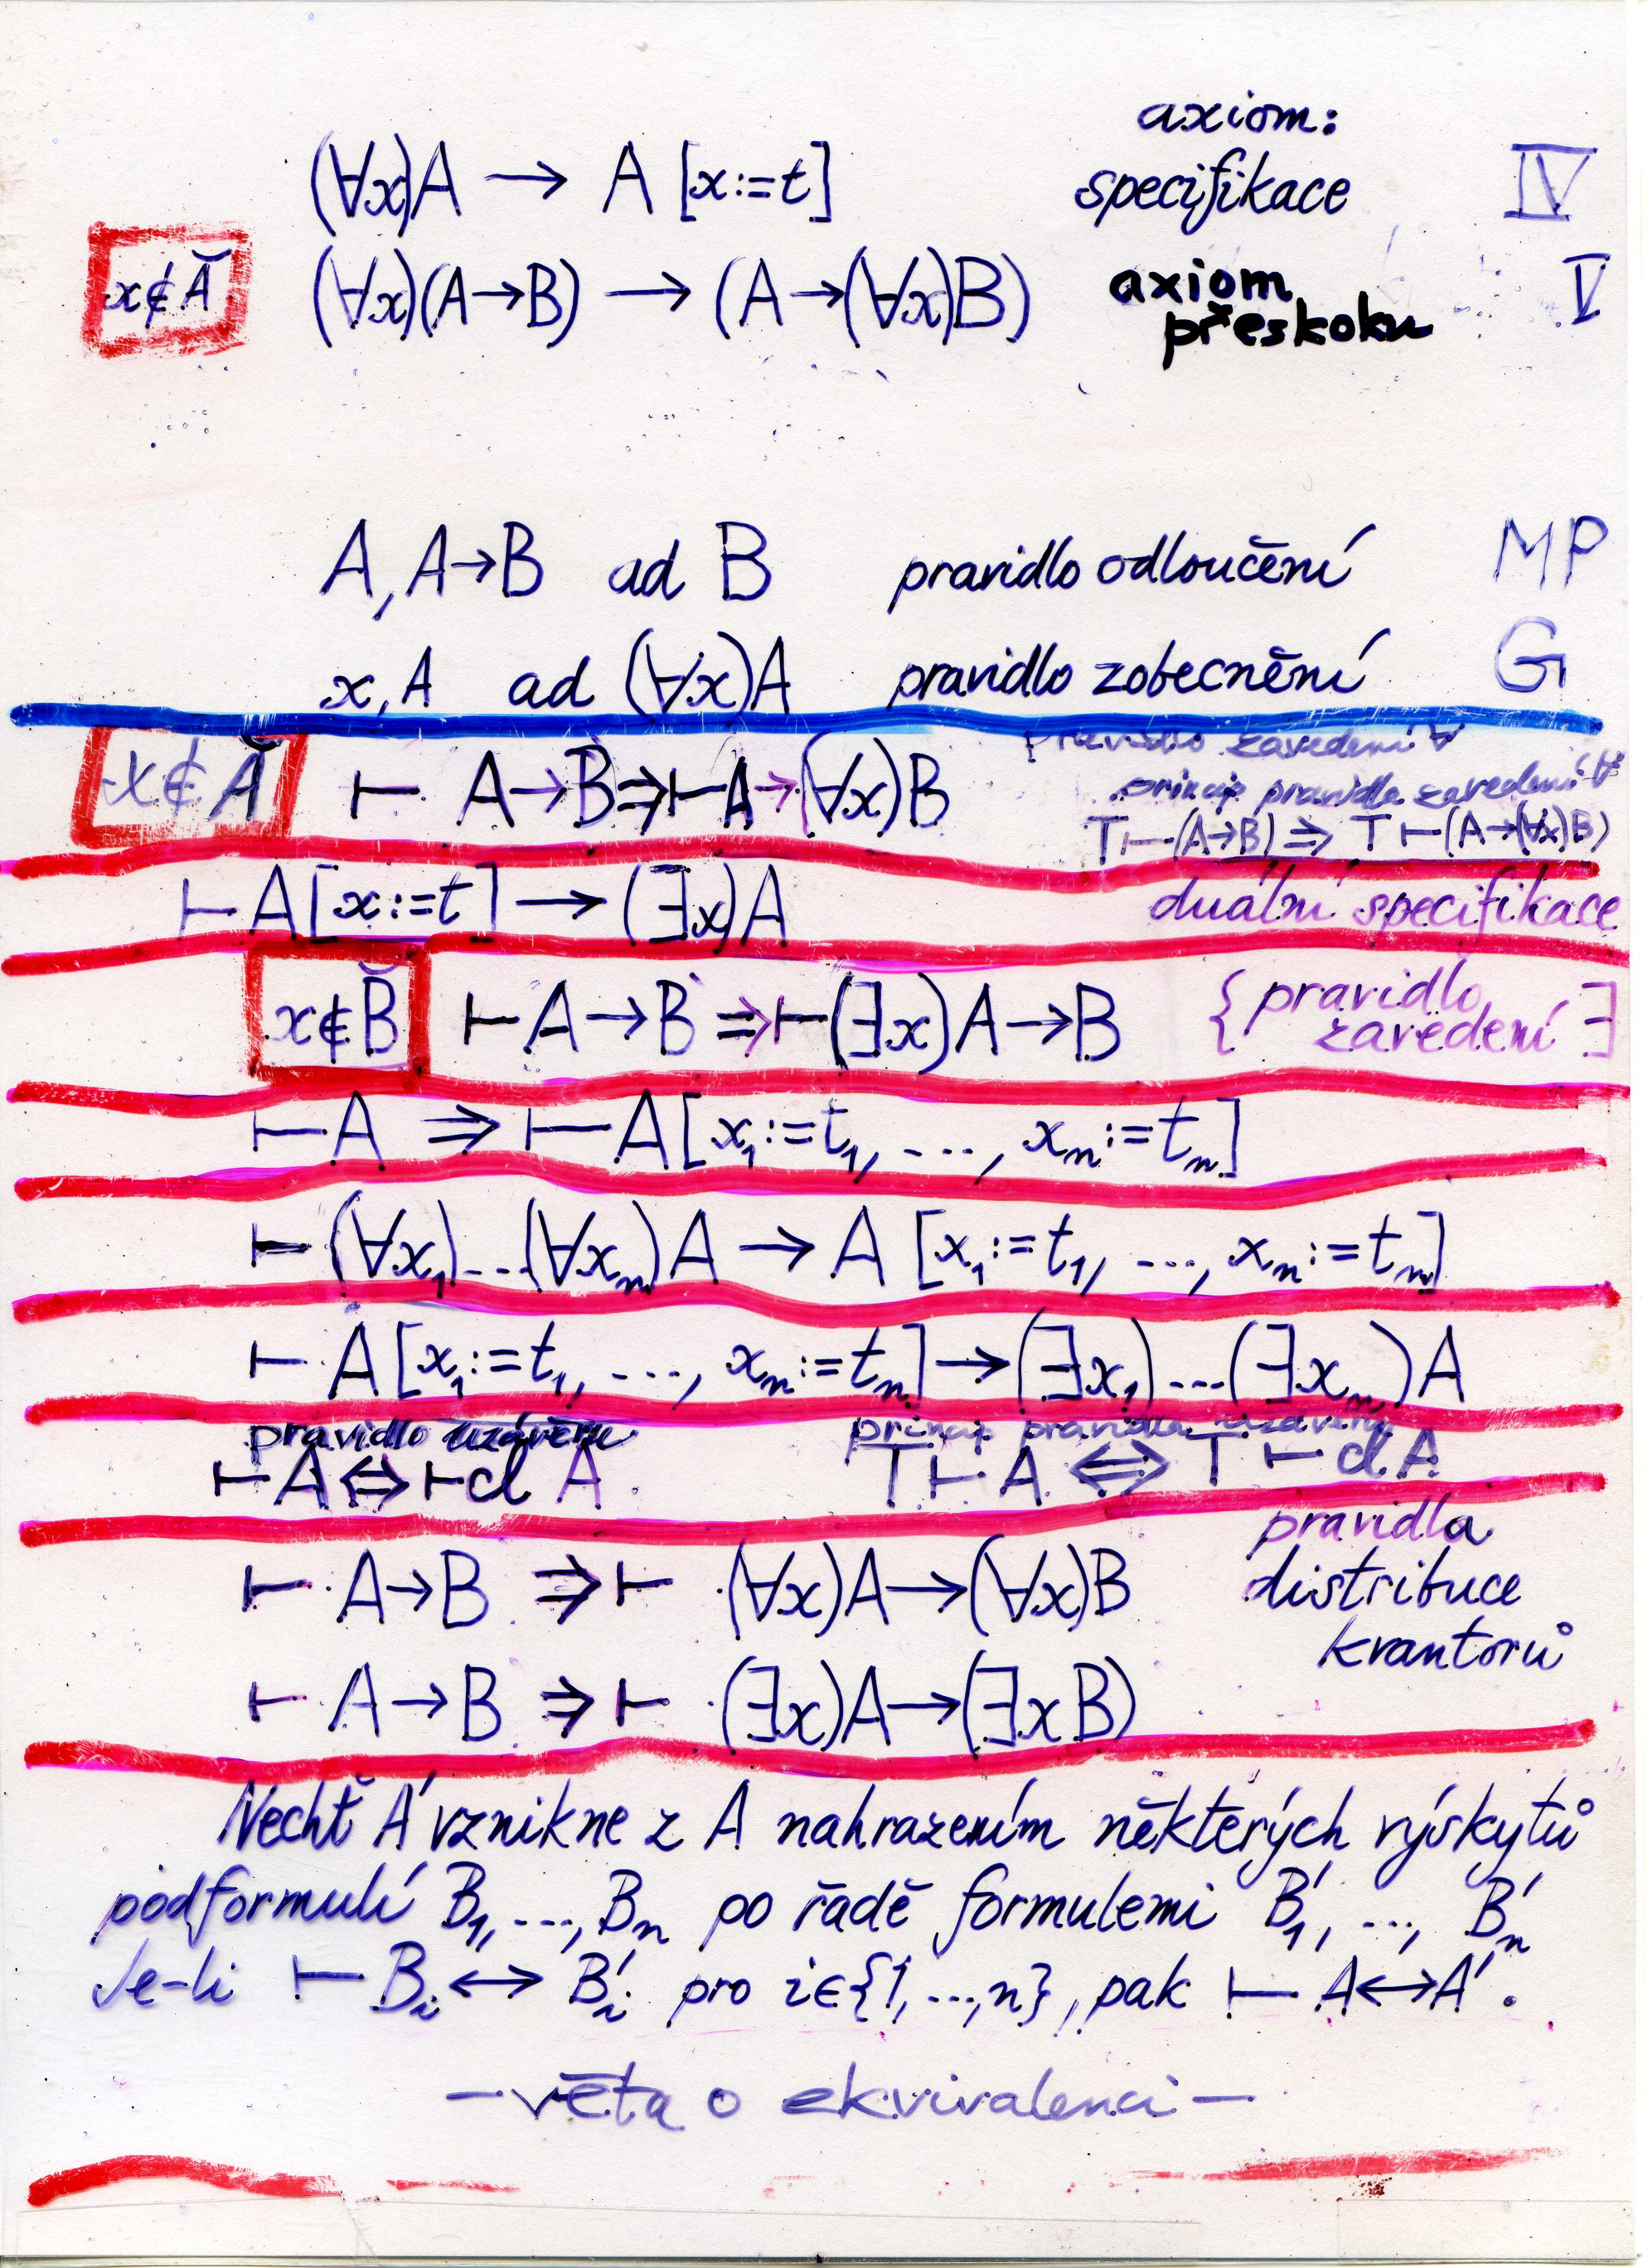 axiom:
(∀x)A → A [x:=t] specifikace IV
x∉Ă (∀x)(A→B) → (A→(∀x)B) axiom V
přeskoku
A, A→B ad B pravidlo odloučení MP
x, A ad (∀x)A pravidlo zobecnění G
pravidlo zavedení ∀
x∉Ă ⊢ A→B ⇒ ⊢ A→(∀x)B princip pravidla zavedení ∀
T ⊢ (A→B) ⇒ T ⊢ (A→(∀x)B)
⊢ A[x:=t] → (∃x)A duální specifikace
x∉B̆ ⊢ A→B ⇒ ⊢ (∃x)A→B { pravidlo
zavedení ∃
⊢ A ⇒ ⊢ A[x₁:=t₁, ..., xₙ:=tₙ]
⊢ (∀x₁)...(∀xₙ)A → A [x₁:=t₁, ..., xₙ:=tₙ]
⊢ A[x₁:=t₁, ..., xₙ:=tₙ] → (∃x₁)...(∃xₙ)A
pravidlo uzávěru princip pravidla uzávěru
⊢ A ⇔ ⊢ cl A T ⊢ A ⇔ T ⊢ cl A
pravidla
⊢ A→B ⇒ ⊢ (∀x)A→(∀x)B distribuce
kvantorů
⊢ A→B ⇒ ⊢ (∃x)A→(∃xB)
Nechť A′ vznikne z A nahrazením některých výskytů
podformulí B₁, ..., Bₙ po řadě formulemi B′₁, ..., B′ₙ
Je-li ⊢ Bᵢ ↔ B′ᵢ pro i∈{1, ..., n}, pak ⊢ A↔A′.
— věta o ekvivalenci —